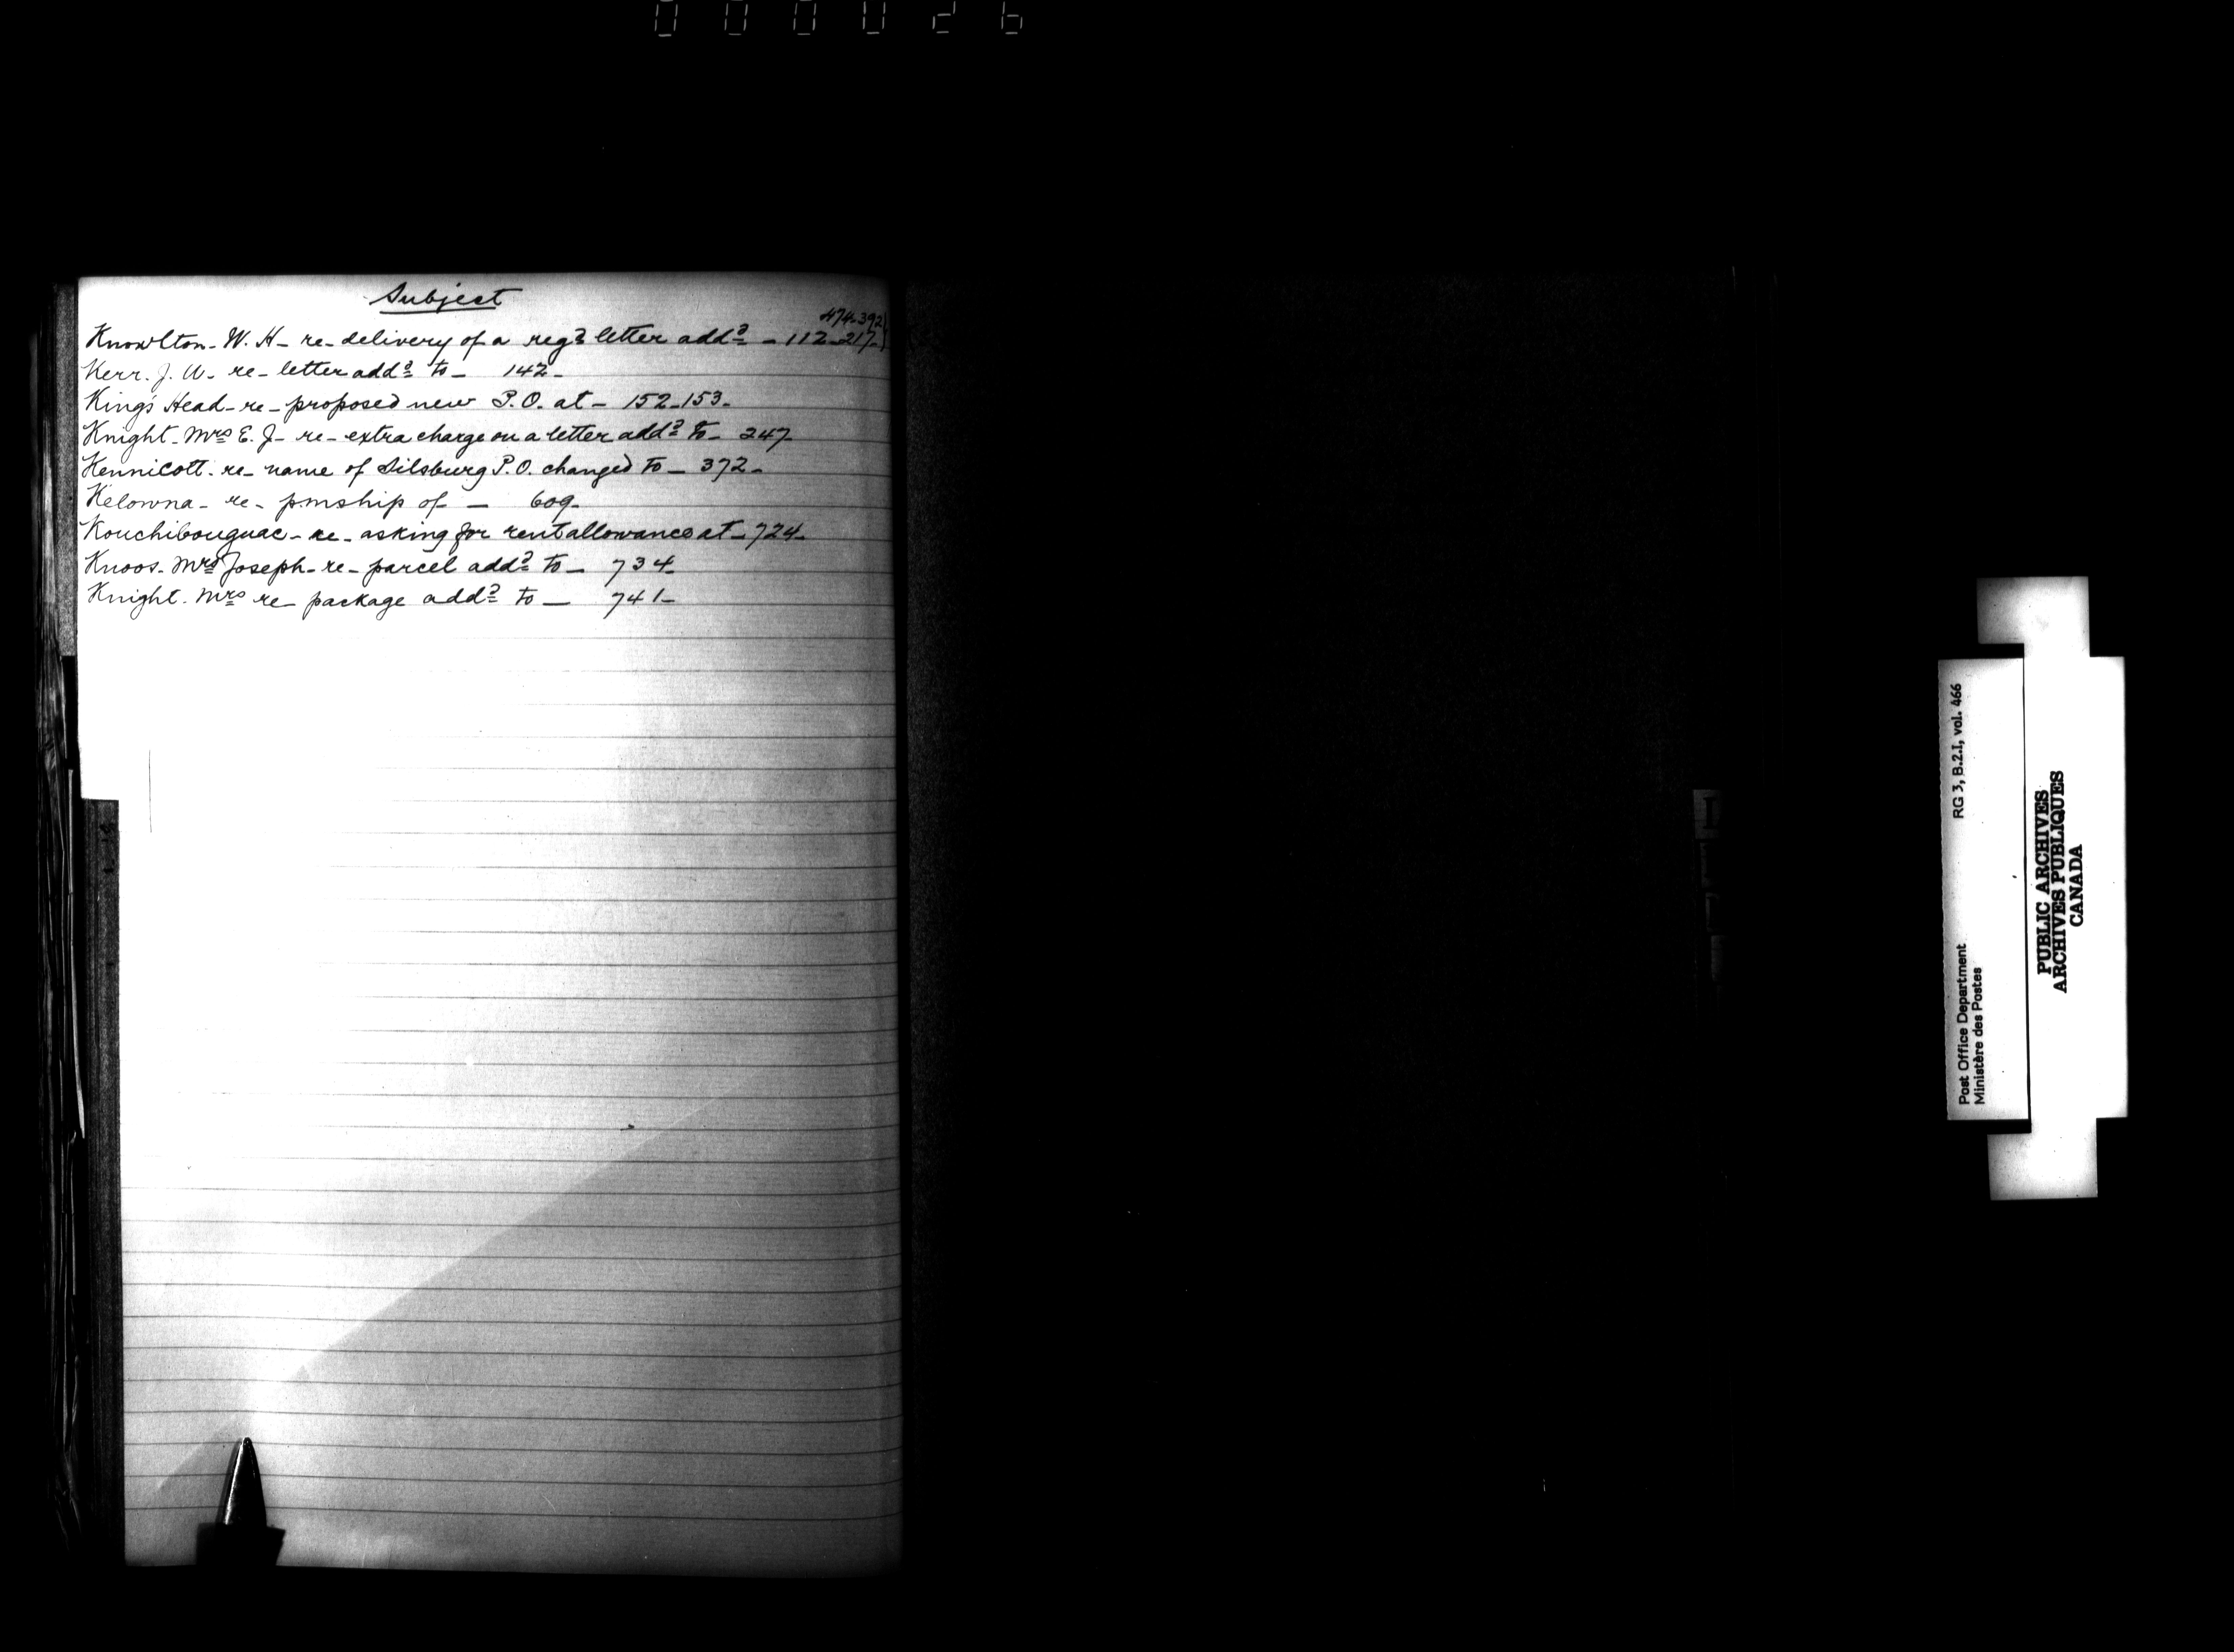 000026
Subject
474-392)
Knowlton - W. H - re - delivery of a reg^d letter add^d - 112-217-)
Kerr. J. W. re - letter add^d to - 142 -
King's Head - re - proposed new P.O. at - 152-153 -
Knight - Mrs E. J - re - extra charge on a letter add^d to - 247 -
Kennicott. re - name of Silsburg P.O. changed to - 372 -
Kelowna - re - pmship of - 609 -
Kouchibouguac - re - asking for rent allowance at - 724 -
Knoos. Mrs Joseph - re - parcel add^d to - 734 -
Knight. Mrs re - package add^d to - 741 -
Post Office Department RG 3, B.2.I, vol. 466
Ministère des Postes
PUBLIC ARCHIVES
ARCHIVES PUBLIQUES
CANADA